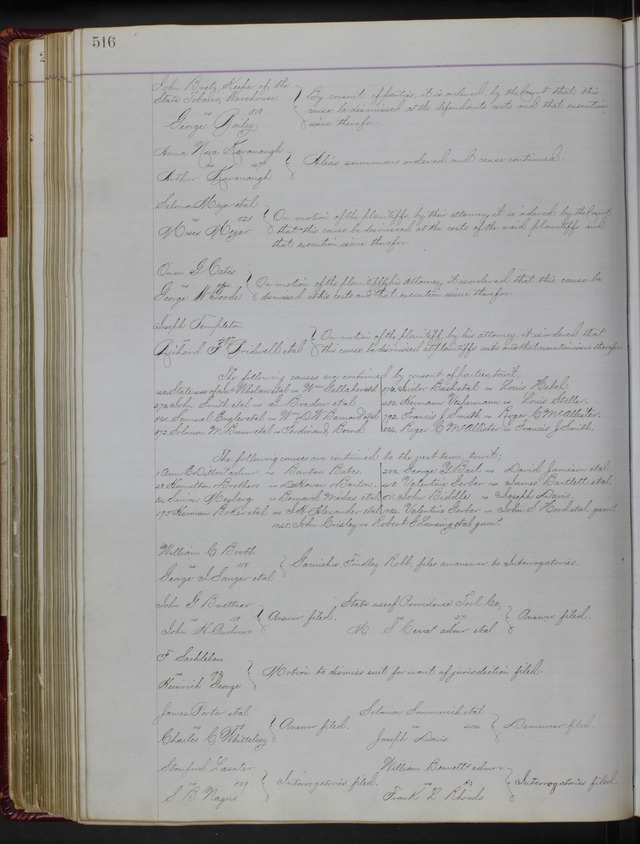 516
John Bretz, Keeper of the
State Tobacco Warehouse
vs 218
George Bailey
By consent of parties, it is ordered by the Court that this
cause be dismissed at the defendants costs and that execution
issue therefor.
Anna Kavanaugh
vs
Arthur Kavanaugh
Alias summons ordered and cause continued.
Selma Meyer et al
vs 121
Moses Meyer
On motion of the plaintiffs, by their attorney, it is ordered by the Court
that this cause be dismissed at the costs of the said plaintiffs and
that execution issue therefor
Owen G Cates
vs
George W Goode
On motion of the plaintiff by his attorney it is ordered that this cause be
dismissed at his costs and that execution issue therefor.
Joseph Templeton
vs
Richard F Bridwell et al
On motion of the plaintiff, by his attorney, it is ordered that
this cause be dismissed at plaintiffs costs and that execution issue therefor
The following causes are continued by consent of parties, towit;
State use of Whelan et al vs Wm Gallaher et al
John Smith et al vs Bradow et al
Samuel Engler et al vs W D W Barnard et al
Solomon M Baum et al vs Ferdinand
Bush et al vs Louis Hebel
Hermann vs Louis Steller.
Francis J Smith vs Roger C McAllister.
Roger C McAllister vs Francis J Smith.
The following causes are continued to the next term, towit;
Ann E Dillon admr vs Barton Bates.
Hamilton & Brothers vs DeHaven & Barton.
vs Bernard Midas et al
Herman Boker et al vs Alexander et al
George G Best vs David Jamison et al
Valentine Gerber vs James Bartlett et al
John Riddle vs Joseph Davis.
Valentine Gerber vs John S et al garnt
John Crisley vs Robert G Lansing et al garnt.
William C Booth
vs 118
George S Sanger et al
Garnishee, Findley Robb, files answer to Interrogatories.
John G Buettner
vs 110
John H Andrews
Answer filed.
State use of Providence Tool Co
vs
M S Cerre admr et al
Answer filed.
F Sachleben
vs
Heinrich George
Motion to dismiss suit for want of jurisdiction filed.
James Porter et al
vs
Charles C Whittelsey
Answer filed.
Solomon et al
vs
Joseph Davis
Demurrer filed.
Stanford
vs
S B
Interrogatories filed.
William Bennett admr
vs
Frank L Rhoads
Interrogatories filed.